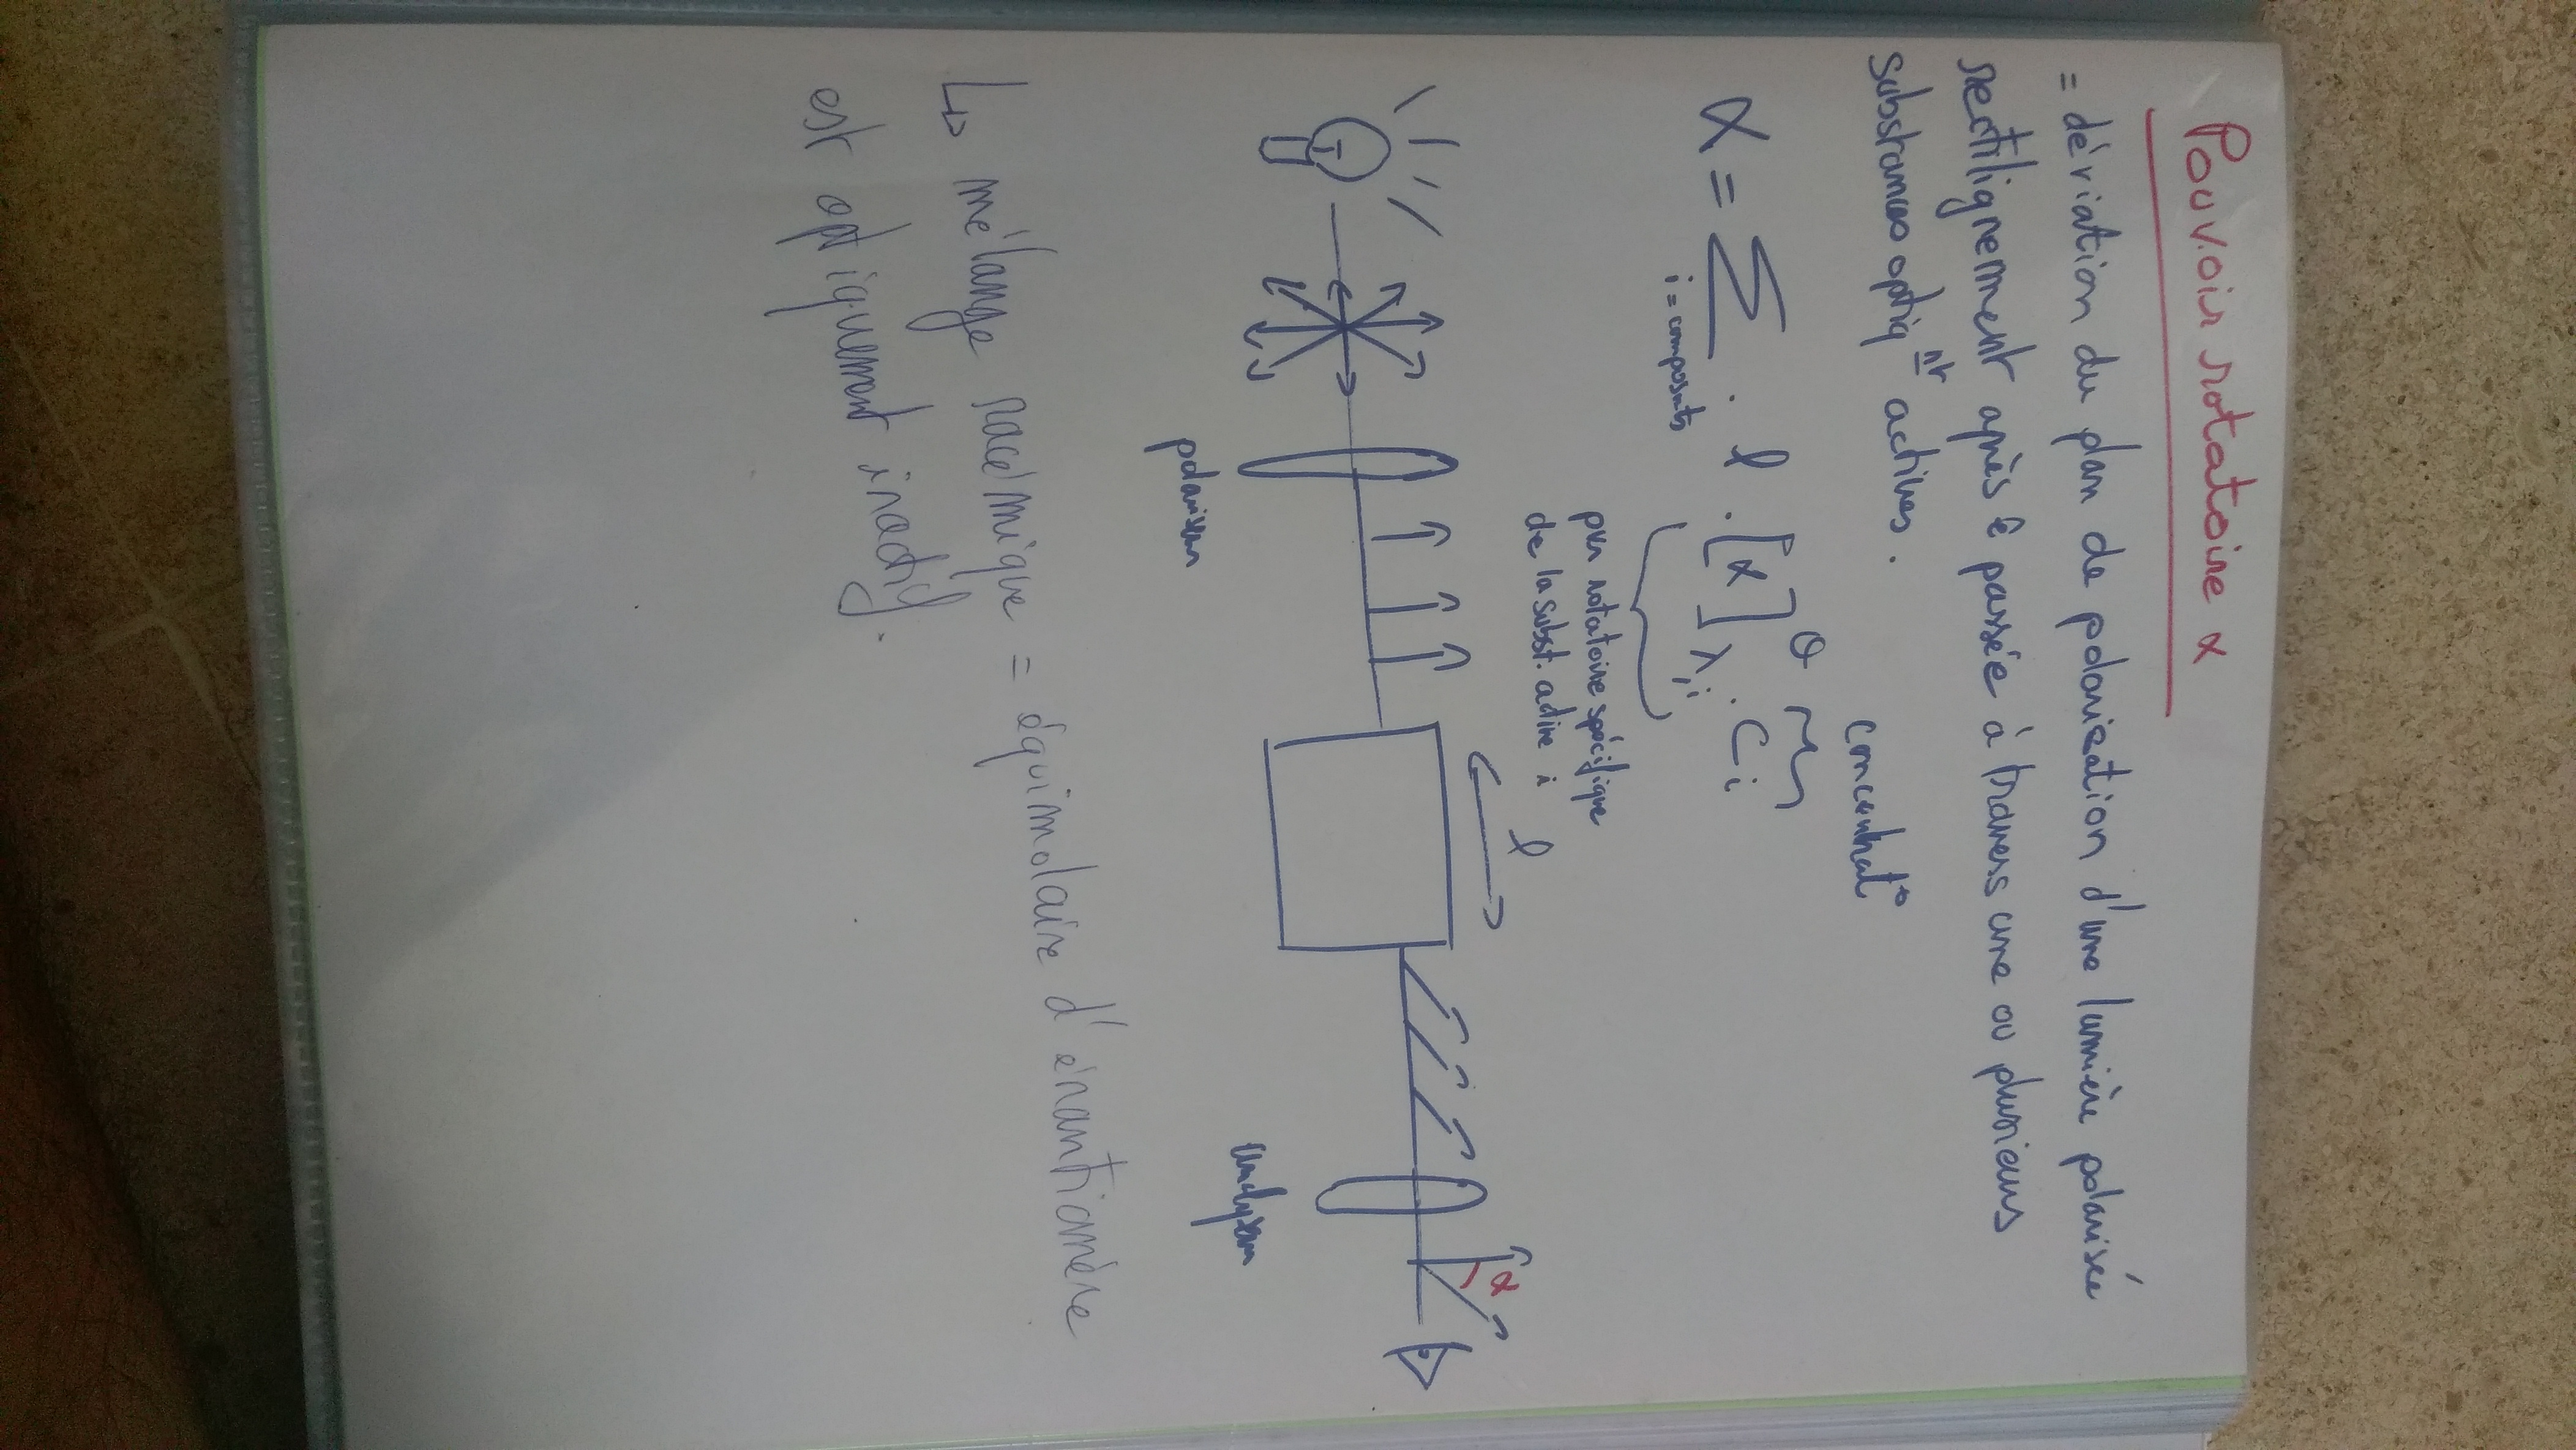 Pouvoir rotatoire α
= déviation du plan de polarisation d'une lumière polarisée
rectilignement après ê passée à travers une ou plusieurs
substances optiq nt actives.
concentrat°
α = Σ . l . [α]^θ_λ,i . Ci
i = composants
pvr rotatoire spécifique
de la subst. active i
l
α
polariseur
analyseur
↳ mélange racémique = équimolaire d'énantiomère
est optiquement inactif.